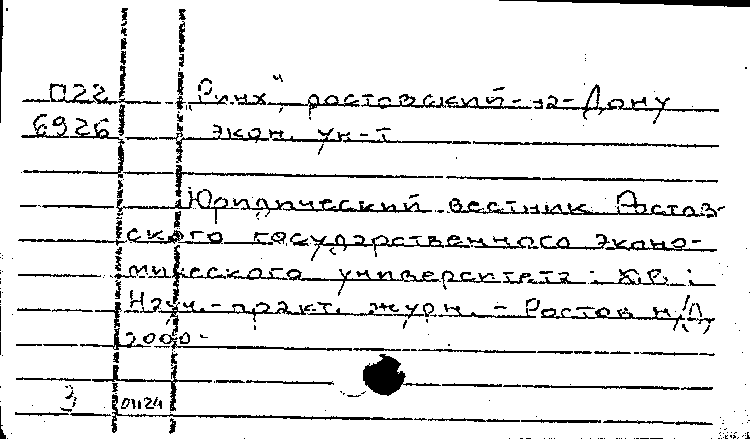 П22 „Ринх", ростовский-на-Дону
6926 экон. ун-т
Юридический вестник Ростов-
ского государственного эконо-
мического университета :
Науч.-практ. журн. - Ростов н/Д,
2000-
3 01124